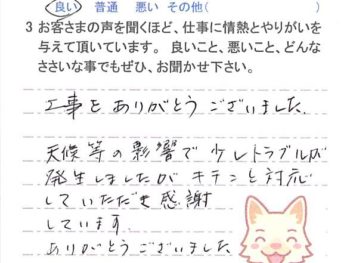 良い 普通 悪い その他( )
3 お客さまの声を聞くほど、仕事に情熱とやりがいを
与えて頂いています。 良いこと、悪いこと、どんな
ささいな事でもぜひ、お聞かせ下さい。
工事を ありがとう ございました
天候等の影響で 少しトラブルが
発生しましたが キチンと対応
していただき感謝
しています
ありがとうございました